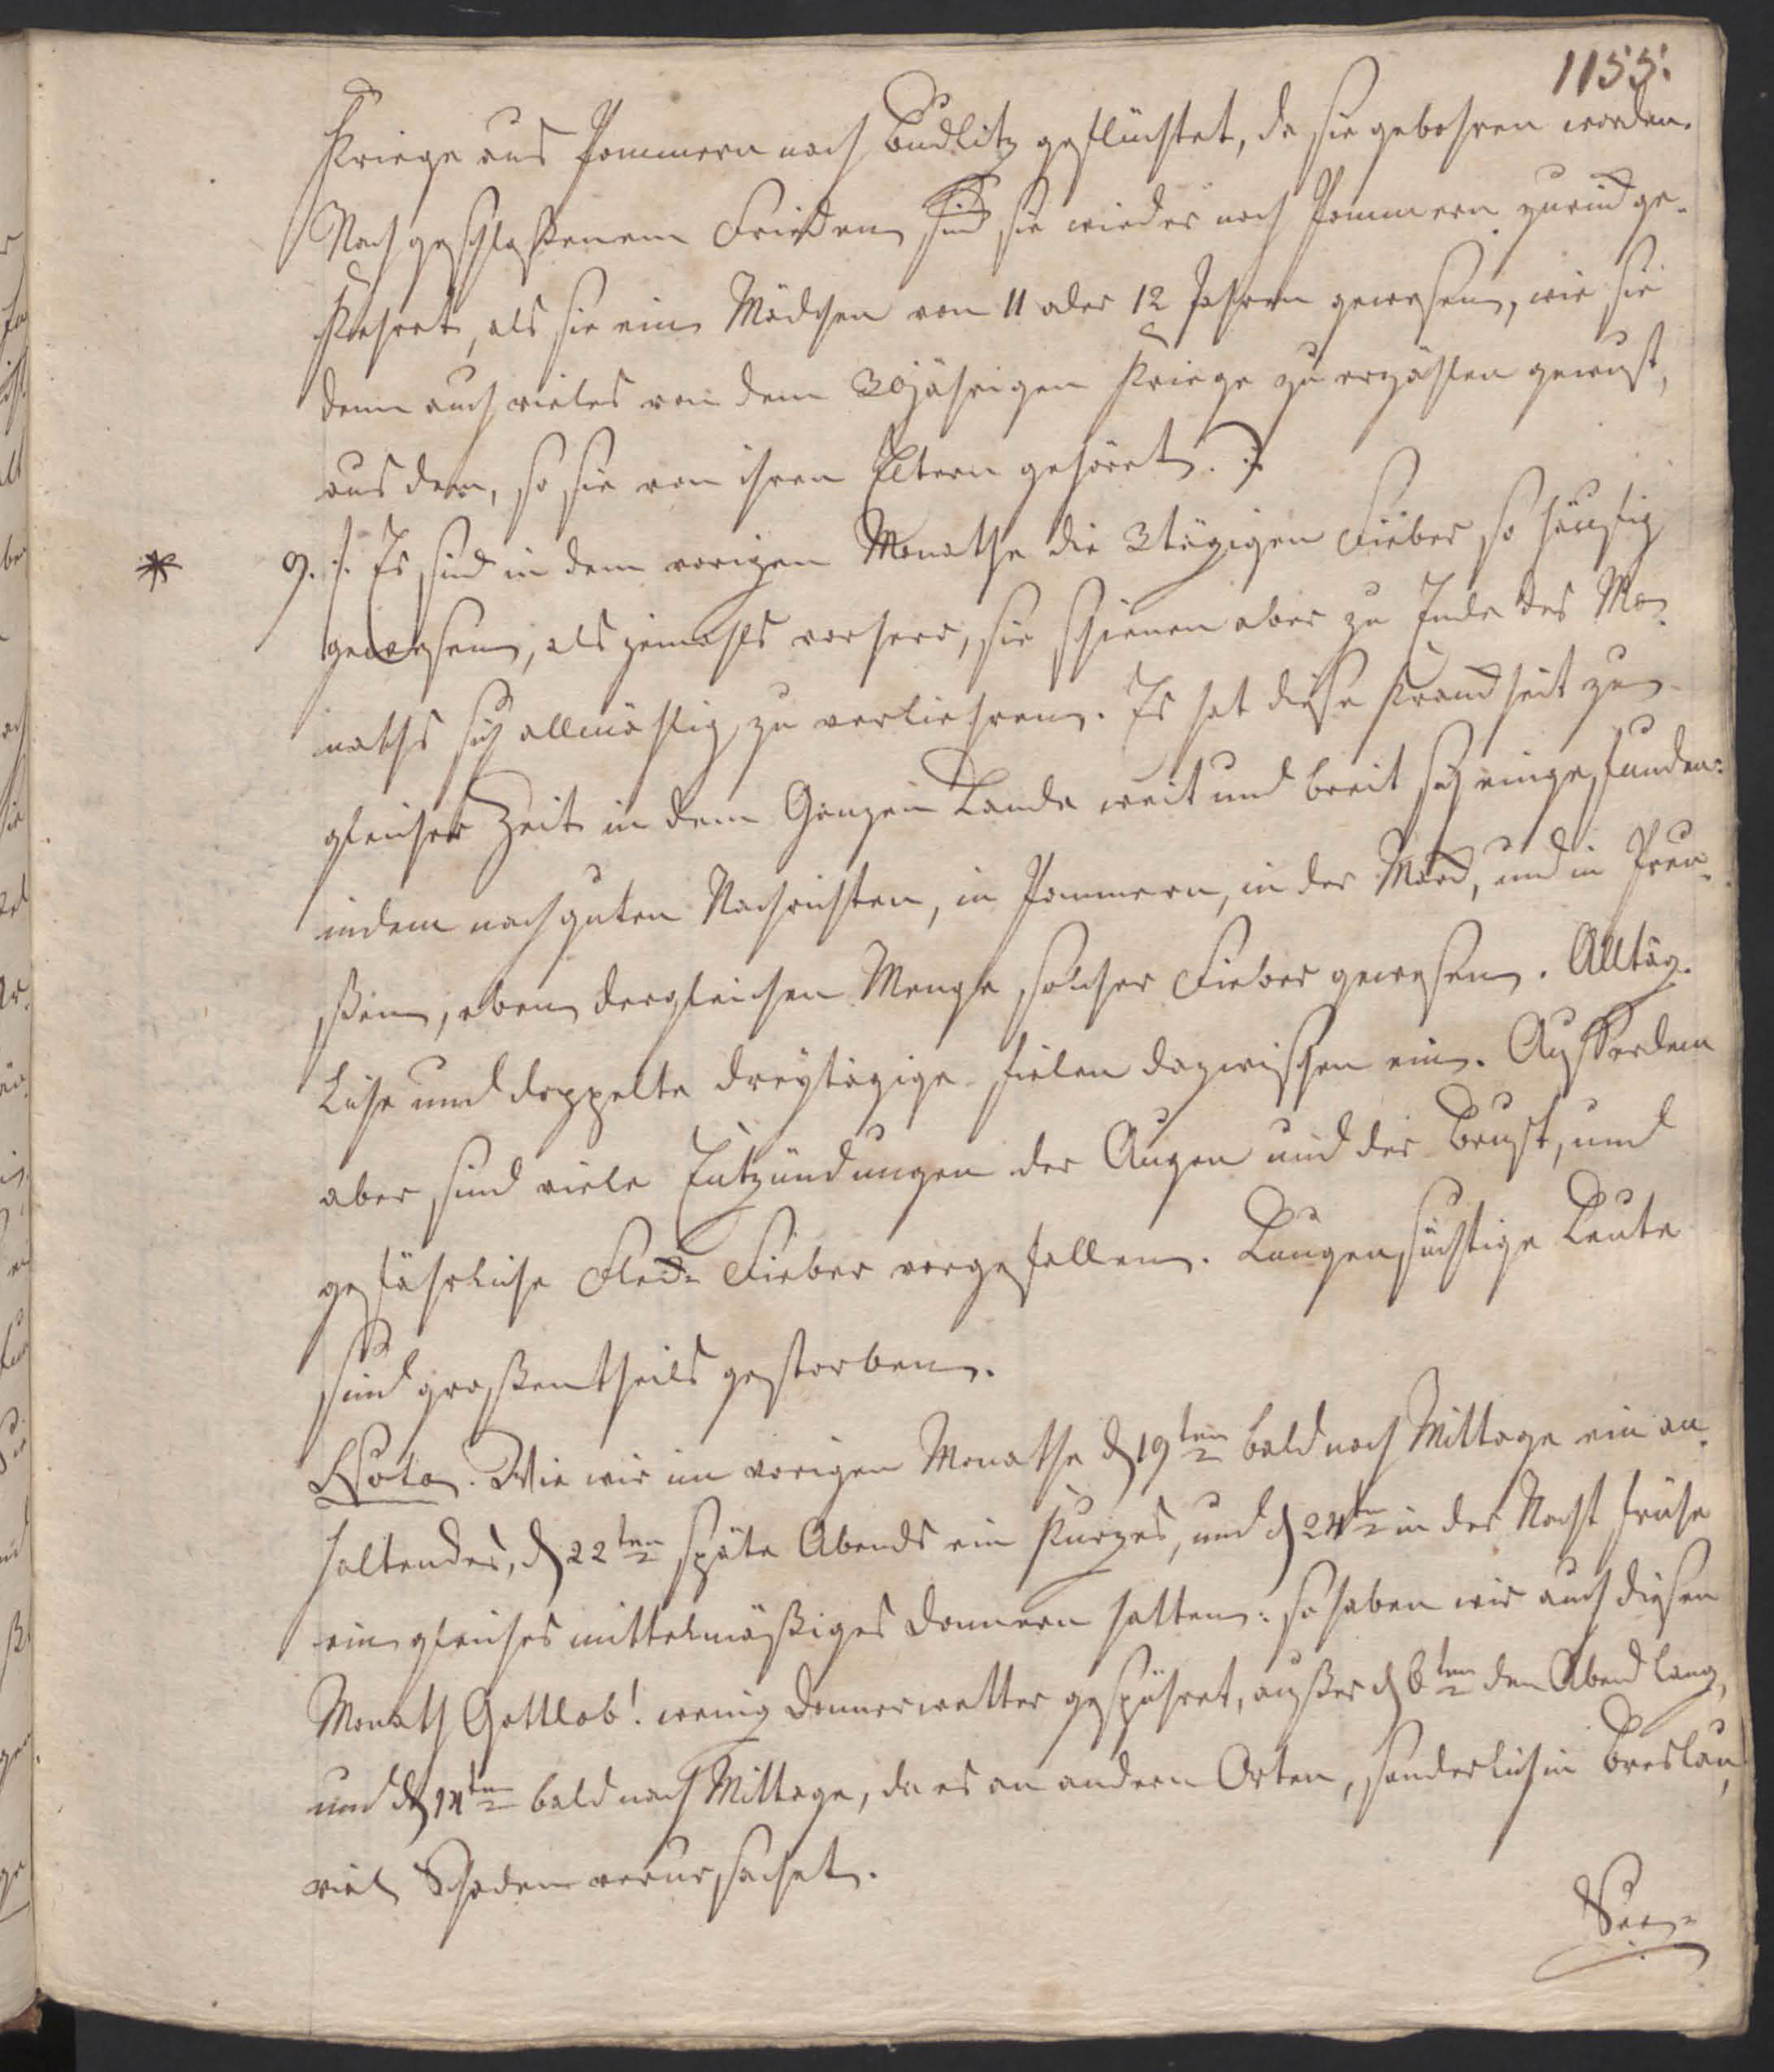 1155.
Kriege aus Pommern nach Budlitz geflüchtet, da sie gebohren worden.
Nach geschloßenem Frieden sind sie wieder nach Pommern zurück ge-
kehret, als sie ein Mädchen von 11 oder 12 Jahren gewesen, wie sie
denn auch vieles von dem 30jährigen Kriege zu erzählen gewust,
aus dem, so sie von ihren Eltern gehöret. :/
* 9. /: Es sind in dem vorigen Monathe die 3tägigen Fieber so häuffig
gewesen, als jemahls vorhero, sie schienen aber zu Ende des Mo-
naths sich allmählig zu verliehren. Es hat diese Kranckheit zu
gleicher Zeit in dem Ganzen Lande weit und breit sich eingefunden:
indem nach guten Nachrichten, in Pommern, in der Marck, und in Preu-
ßen, eben dergleichen Menge solcher Fieber gewesen. Alltäg-
liche und doppelte dreytägige fielen dazwischen ein. Ausserdem
aber sind viele Entzündungen der Augen und der Brust, und
gefährliche Fleck-Fieber vorgefallen. Lungensüchtige Leute
sind großentheils gestorben.
Nota. Wie wir im vorigen Monathe d 19ten bald nach Mittage ein an-
haltendes, d 22ten späte Abends ein kurzes, und d 24ten in der Nacht frühe
ein gleiches mittelmäßiges Donnern hatten: so haben wir auch diesen
Monath Gottlob! wenig Donnerwetter gespühret, außer d 6ten den Abend lang,
und d 14ten bald nach Mittage, da es an andern Orten, sonderlich in Breslau,
viel Schaden verursachet.